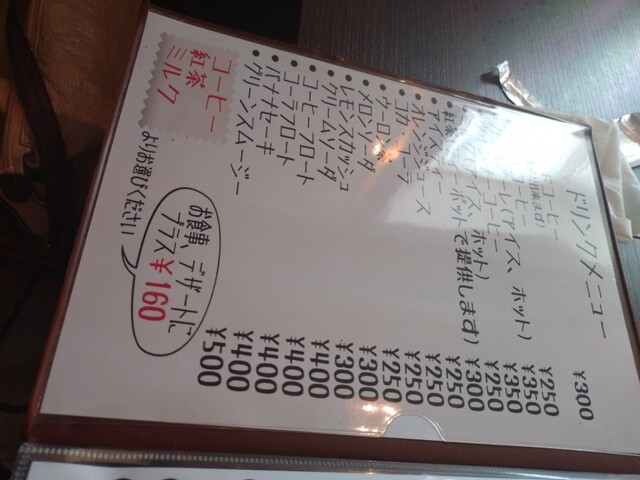 ドリンクメニュー
¥300
コーヒー ¥250
(アイス、ホット) ¥350
コーヒー ¥350
ホット) ¥250
紅茶 ホットで提供します) ¥300
¥250
オレンジジュース ¥250
コカ・コーラ ¥250
ウーロン茶 ¥250
メロンソーダ ¥300
レモンスカッシュ ¥300
クリームソーダ ¥400
コーヒーフロート ¥400
コーラフロート ¥400
バナナセーキ ¥400
グリーンスムージー ¥500
コーヒー
紅茶
ミルク
よりお選びください
お食事、デザートに
プラス¥160